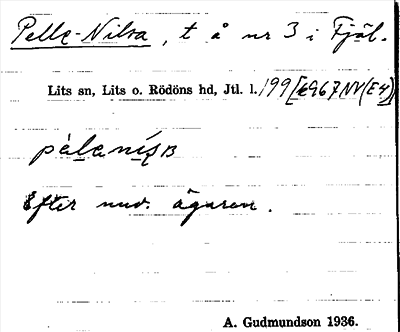 Pelle-Nilsa, t å nr 3 i Fjäl.
Lits sn, Lits o. Rödöns hd, Jtl. l. 199 [4967NV(E4)]
Efter nuv. ägaren.
A. Gudmundson 1936.